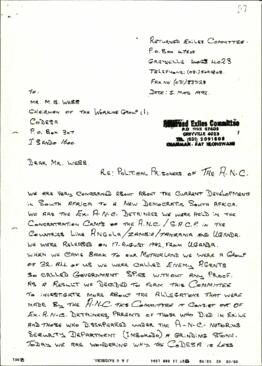 RETURNED EXILES COMMITTEE
P.O BOX 47603
GREYVILLE 4023
TELEPHONE:
FAX NO
DATE: 2 MAY 1992.
TO.
MR. M.B. WEBB
CHAIRMAN OF THE WORKING GROUP (1)
CODESA
P.O. BOX 307
ISANDO 1600
Returned Exiles Committee
P.O. BOX 47603
GREYVILLE 4023
TEL (031) 3091808
CHAIRMAN: PAT HLONGWANE
DEAR MR. WEBB.
RE: POLITICAL PRISONERS OF THE A.N.C.
WE ARE VERY CONCERNED ABOUT ABOUT THE CURRENT DEVELOPMENTS
IN SOUTH AFRICA TO A NEW DEMOCRATIC SOUTH AFRICA.
WE AS THE EX-A.N.C. DETAINEES WE WERE HELD IN THE
CONCENTRATION CAMPS OF THE A.N.C./S.A.C.P. IN THE
COUNTRIES LIKE ANGOLA/ZAMBIA/TANZANIA AND UGANDA.
WE WERE RELEASED ON 17 AUGUST FROM UGANDA.
WHEN WE CAME BACK TO OUR MOTHERLAND WE WERE A GROUP
OF 32. ALL OF US WE WERE CALLED ENEMY AGENTS
SO CALLED GOVERNMENT SPIES WITHOUT ANY PROOF.
AS A RESULT WE DECIDED TO FORM THIS COMMITTEE
TO INVESTIGATE MORE ABOUT THE ALLEGATIONS THAT WERE
MADE BY THE A.N.C. THIS COMMITTEE CONSIST OUT OF
EX-A.N.C. DETAINEES, PARENTS OF THOSE WHO DIED IN EXILE
AND THOSE WHO DISAPPEARED UNDER THE A-N-C- NOTORIOUS
SECURITY DEPARTMENT (IMBOKODO) A GRINDING STONE.
TODAY WE ARE WONDERING WHY THE CODESA IS LESS